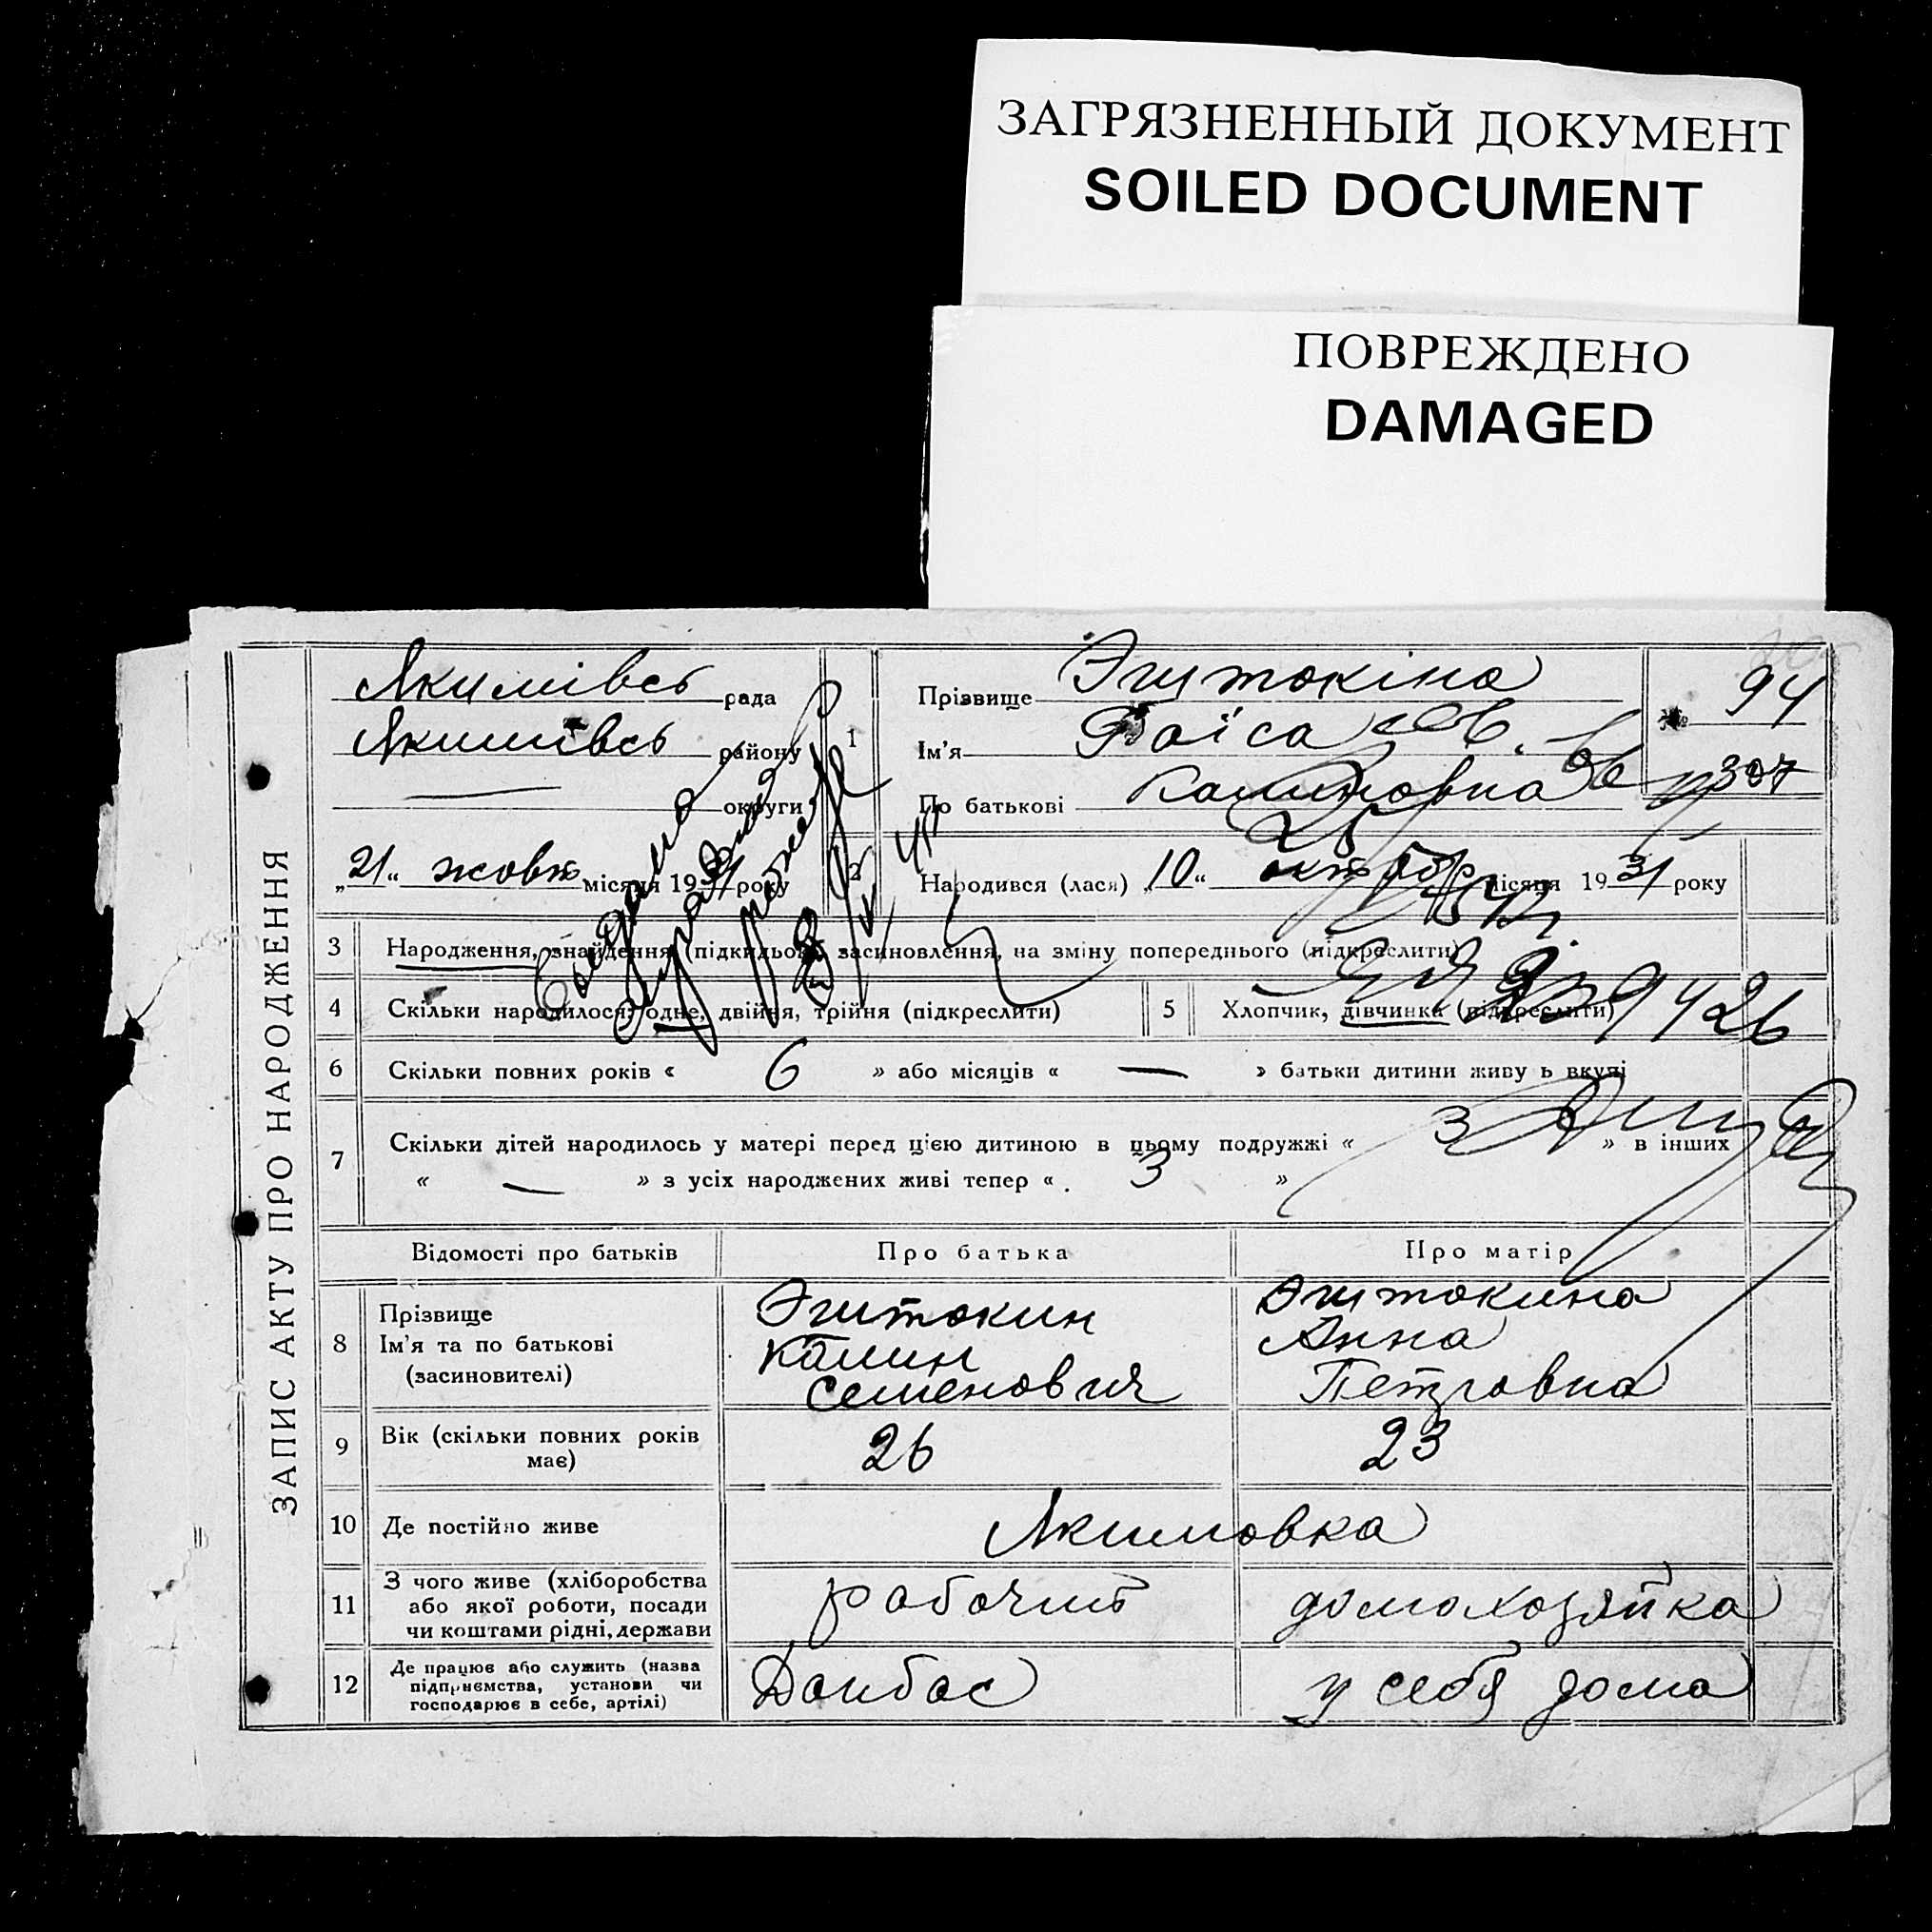 ЗАГРЯЗНЕННЫЙ ДОКУМЕНТ
SOILED DOCUMENT
ПОВРЕЖДЕНО
DAMAGED
ЗАПИС АКТУ ПРО НАРОДЖЕННЯ
Якимівсь рада
Якимівсь району
— округи
„21“ жовт. місяця 1931 року
1
Прізвище
Ім'я Раїса
По батькові Калиновна
№ 94
307
2
Народився (лася) „10“ октябр місяця 1931 року
3 Народження, знайдення (підкидьок), засиновлення, на зміну попереднього (підкреслити)
4 Скільки народилося: одне, двійня, трійня (підкреслити)
5 Хлопчик, дівчинка (підкреслити)
6 Скільки повних років « 6 » або місяців « — » батьки дитини живуть вкупі
7 Скільки дітей народилось у матері перед цією дитиною в цьому подружжі « 3 » в інших
« — » з усіх народжених живі тепер « 3 »
Відомості про батьків Про батька Про матір
8 Прізвище
Ім'я та по батькові
(засиновителі)
Калин
Семенович
Анна
Петровна
9 Вік (скільки повних років
має)
26 23
10 Де постійно живе Якимовка
11 З чого живе (хліборобства
або якої роботи, посади
чи коштами рідні, держави
рабочий домохозяйка
12 Де працює або служить (назва
підприємства, установи чи
господарює в себе, артілі)
Донбас у себя дома